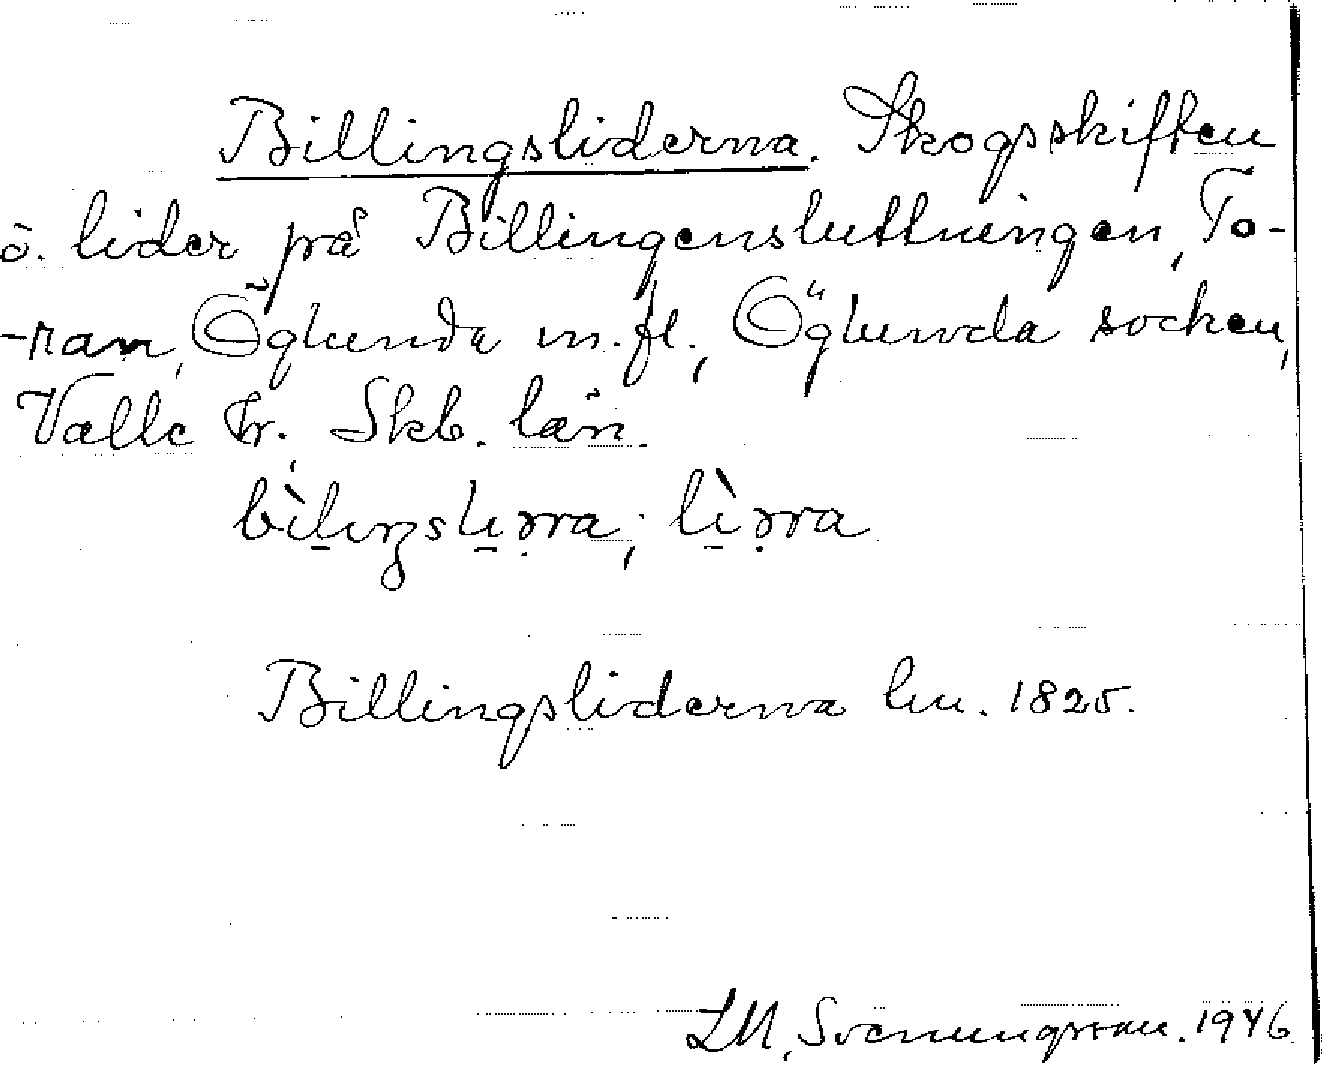 Billingsliderna. Skogsskiften
o. lider på Billingensluttningen, To-
-ran, Öglunda m.fl., Öglunda socken,
Valle hr. Skb. län.
Billingsliderna lm. 1825.
LM. Svenungsson. 1946